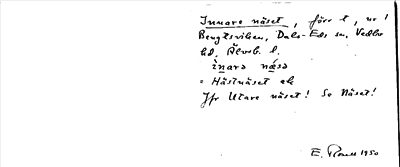 Innare näset, förr t, nr 1
Bengtsviken, Dals-Eds sn, Vedbo
hd, Älvsb. l.
ìnarə nǽsə
= Hästnäset ak
Jfr Utare näset! Se Näset!
E. 1950